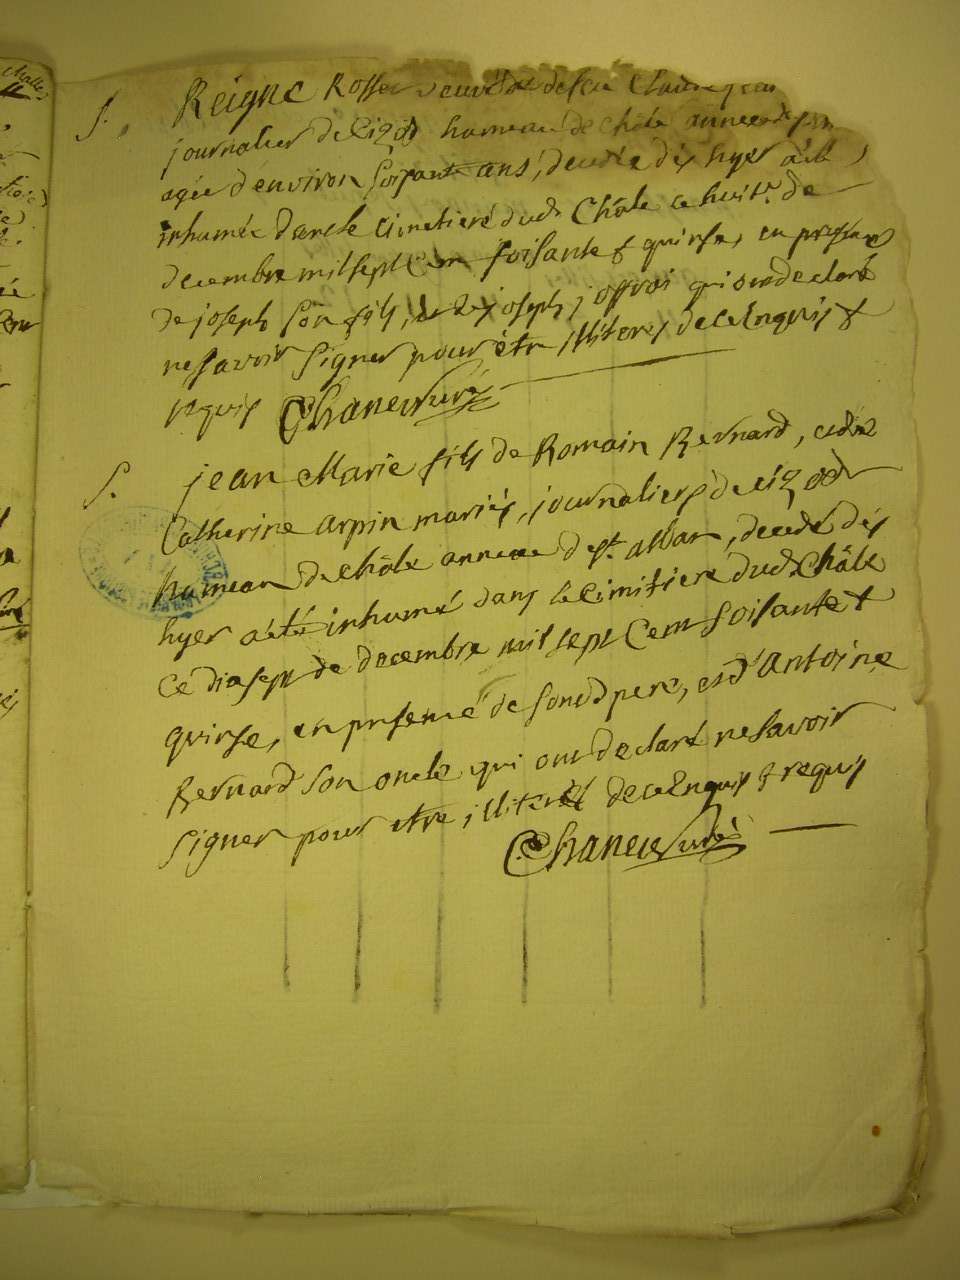 S. Reigne Rosser veuve de feu Claude
journalier de hameau de Châle annexe de
agée d'environ soisante ans, decedée dés hyer a été
inhumée dans le cimetiere dud. Châle ce huit. de
decembre mil sept cent soisante & quinse, en presence
de joseph son fils, et de joseph joffroi qui ont declaré
ne savoir signer pour être illiterés de ce Enquis &
requis Chanel curé
S. jean Marie fils de Romain Bernard, et de
Catherine arpin mariés, journaliers de
hameau de châle annexe de st. alban, decedé dés
hyer a été inhumé dans le cimitiere dud. Châle
Ce dix sept de decembre mil sept Cent soisante &
quinse, en presence de son d. pere, et d'Antoine
Bernard son oncle qui ont declaré ne savoir
signer pour etre illiterés de ce Enquis & requis
Chanel curé